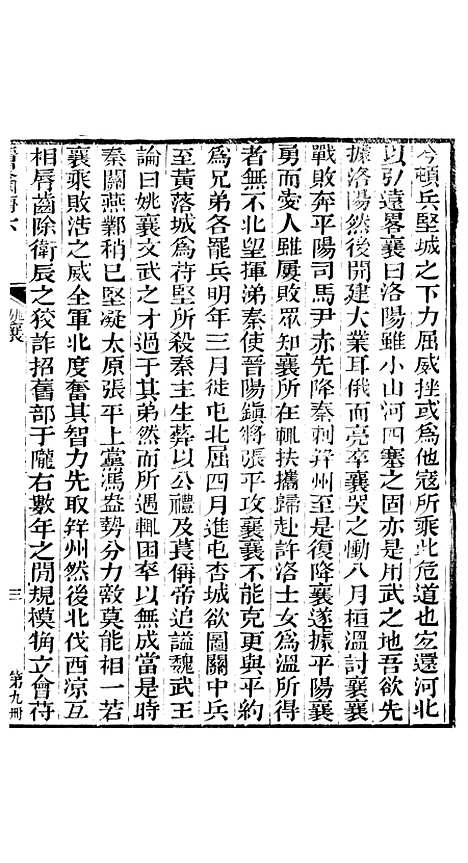 今頓兵堅城之下力屈威挫或爲他寇所乘此危道也宜還河北
以引遠畧襄曰洛陽雖小山河四塞之固亦是用武之地吾欲先
據洛陽然後開建大業耳俄而亮卒襄哭之慟八月桓溫討襄襄
戰敗奔平陽司馬尹赤先降秦刺幷州至是復降襄遂據平陽襄
勇而愛人雖屢敗眾知襄所在輒扶攜歸赴許洛士女爲溫所得
者無不北望揮涕秦使晉陽鎮將張平攻襄襄不能克更與平約
爲兄弟各罷兵明年三月徙屯北屈四月進屯杏城欲圖關中兵
至黃落城爲苻堅所殺秦主生葬以公禮及萇僭帝追謚魏武王
論曰姚襄文武之才過于其弟然而所遇輒困卒以無成當是時
秦關燕鄴稍已堅凝太原張平上黨馮鴦勢分力敵莫能相一若
襄乘敗浩之威全軍北度奮其智力先取幷州然後北伐西凉互
相唇齒除衛辰之狡詐招舊部于隴右數年之閒規模犄立會苻
姚襄
三
第九冊